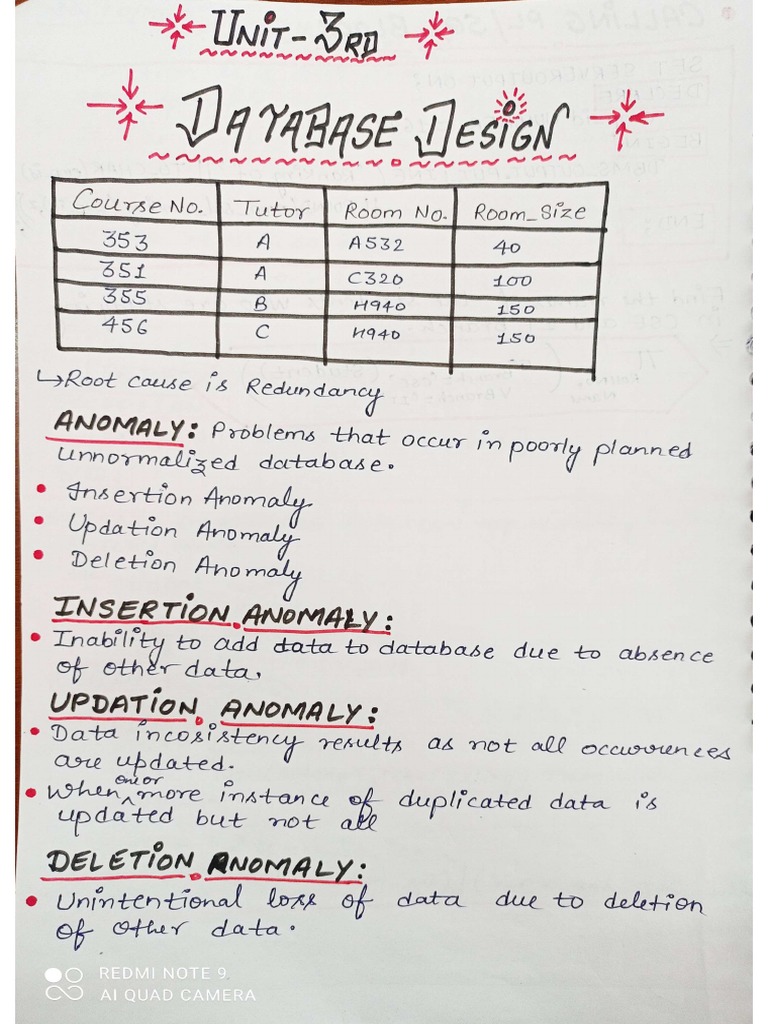 UNIT-3RD
DATABASE DESIGN
Course No. Tutor Room No. Room_Size
353 A A532 40
351 A C320 100
355 B H940 150
456 C H940 150
↳Root cause is Redundancy
ANOMALY: Problems that occur in poorly planned
unnormalized database.
• Insertion Anomaly
• Updation Anomaly
• Deletion Anomaly
INSERTION ANOMALY:
• Inability to add data to database due to absence
of other data.
UPDATION ANOMALY:
• Data incosistency results as not all occurrences
are updated.
• When one or more instance of duplicated data is
updated but not all
DELETION ANOMALY:
• Unintentional loss of data due to deletion
of other data.
REDMI NOTE 9
AI QUAD CAMERA